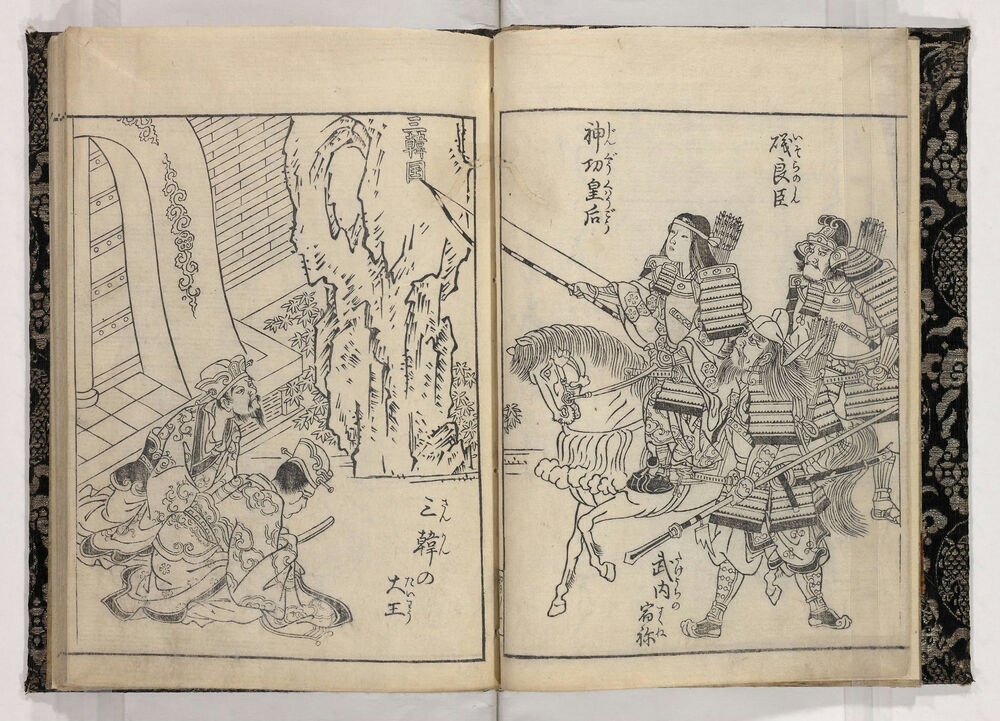 礒良臣
いそらのしん
神功皇后
じんぐうくわうごう
武内
たけうちの
宿祢
すくね
三韓国
三韓の
さんかん
大王
たいわう